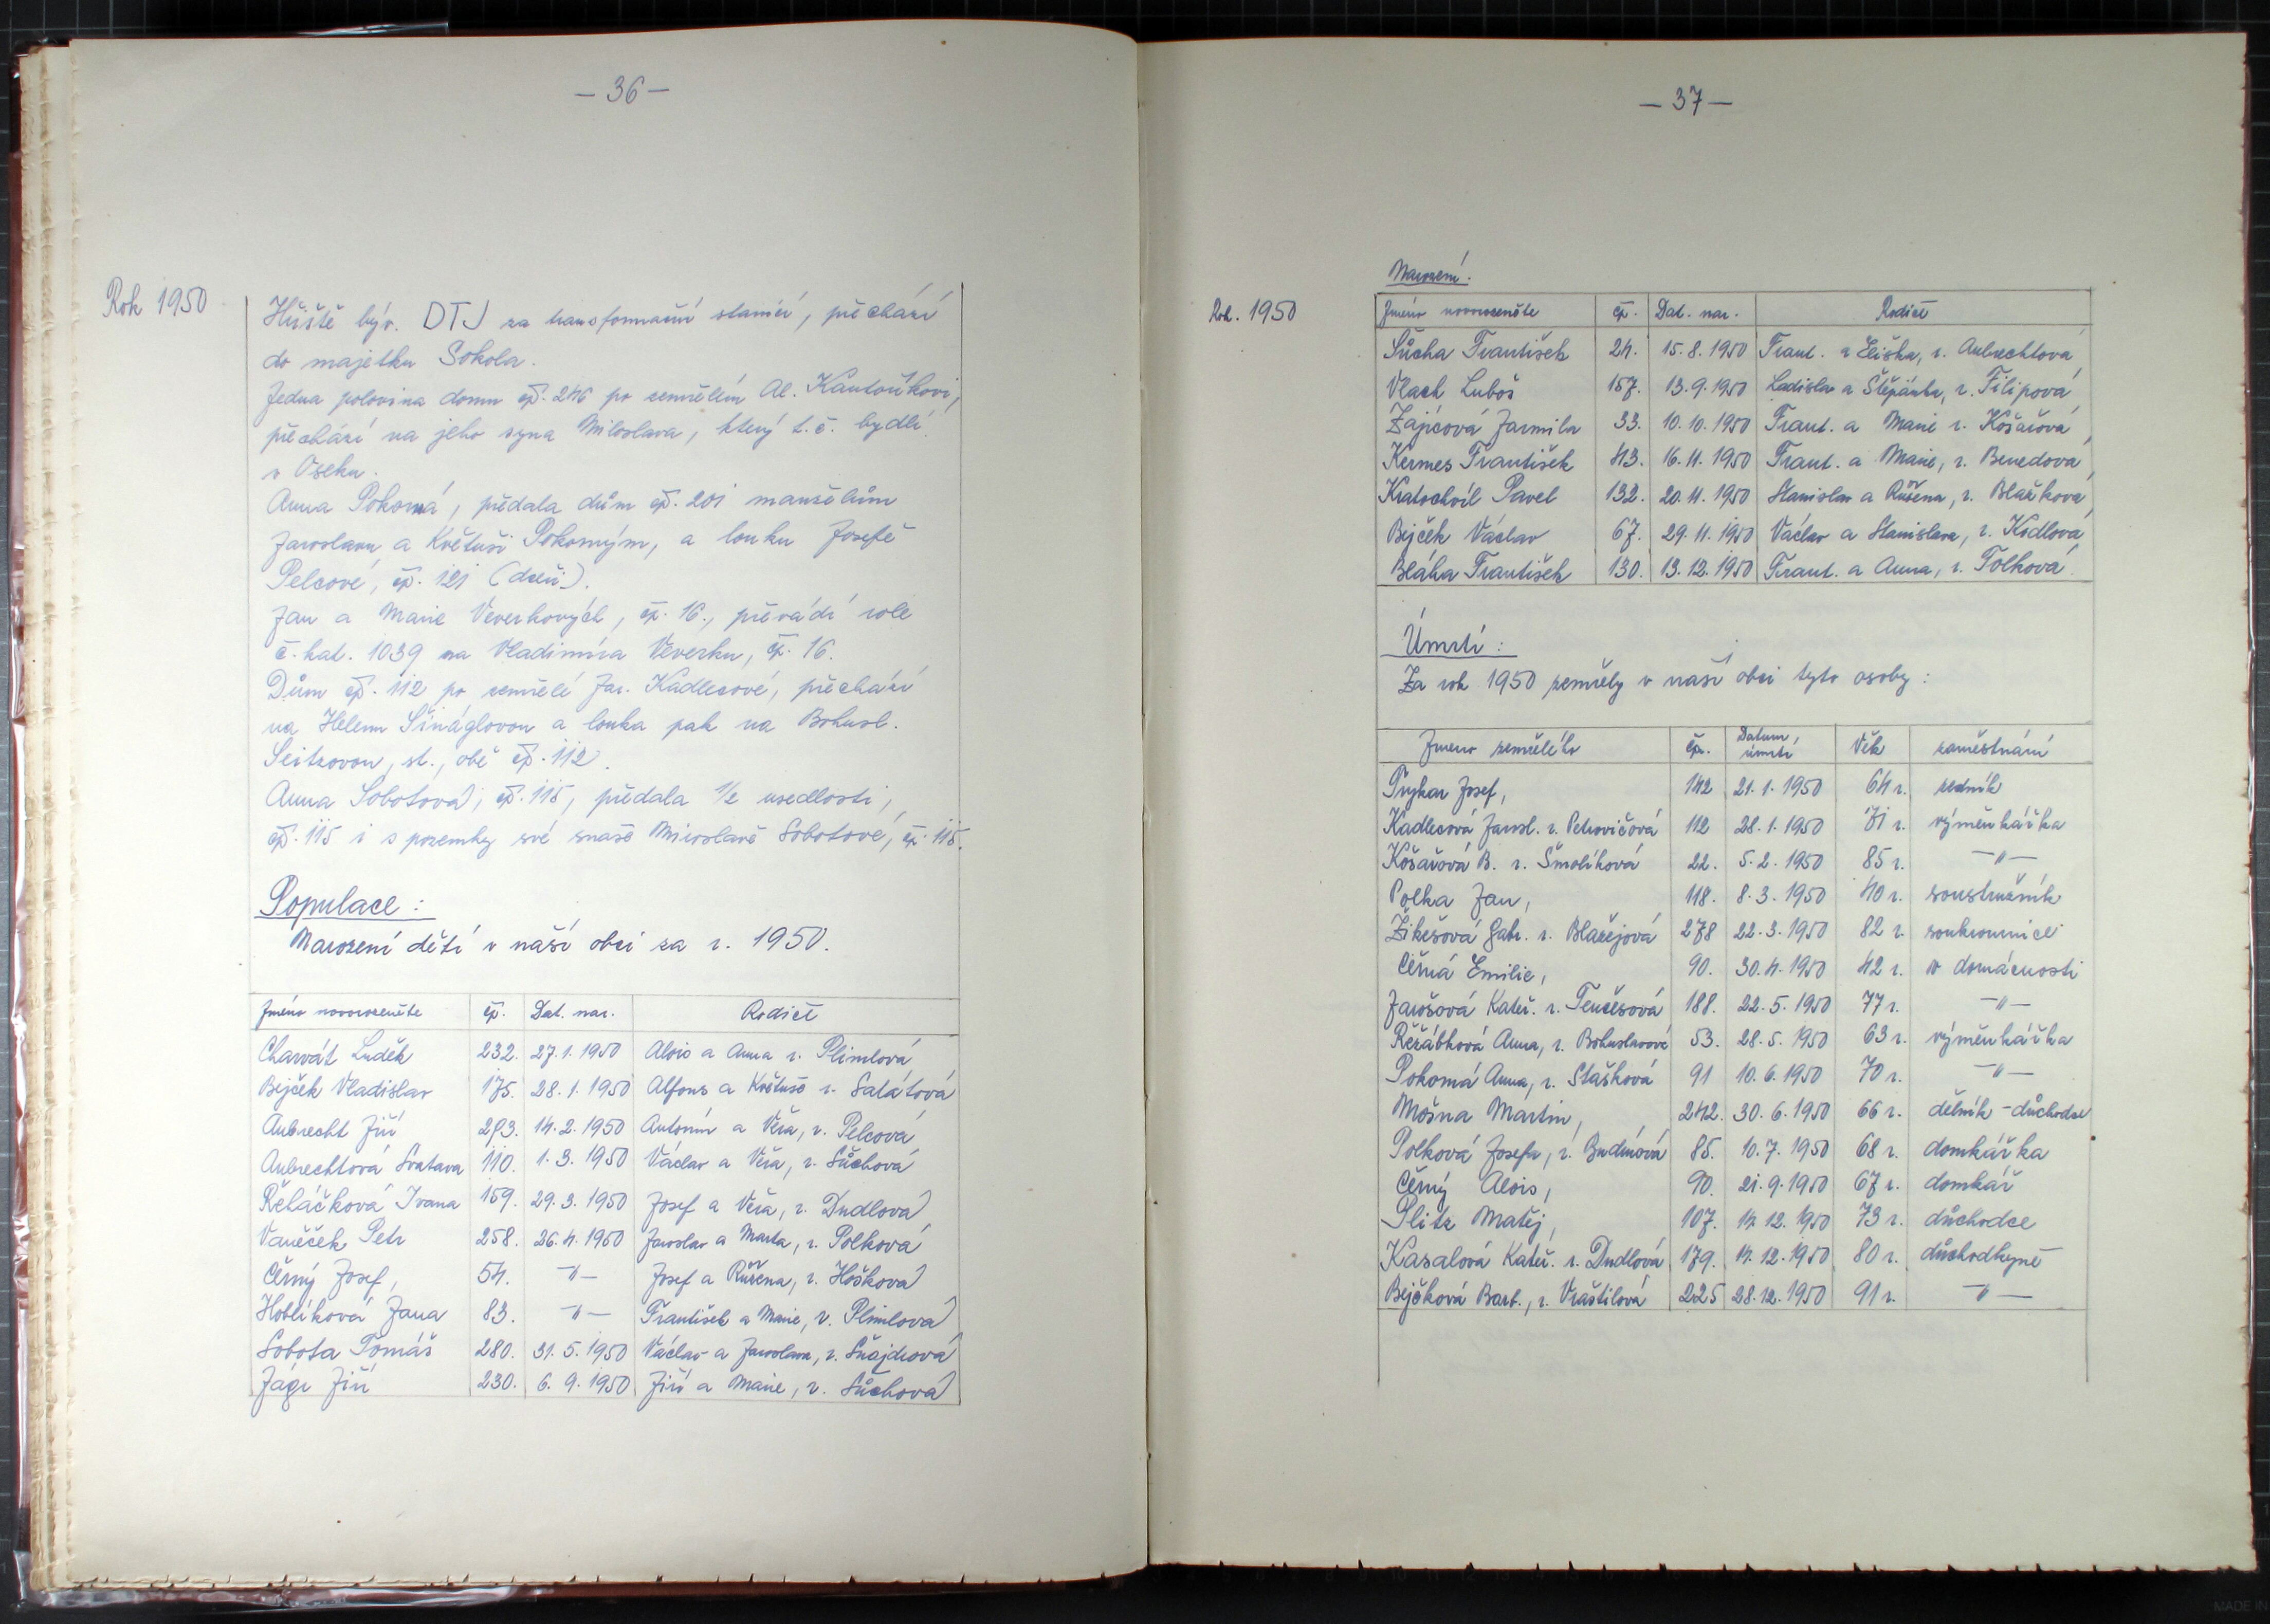 — 36 —
Rok 1950
Hřiště býv. DTJ za transformační stanicí, přechází
do majetku Sokola.
Jedna polovina domu čp. 246 po zemřelém Al. Kantoříkovi,
přechází na jeho syna Miloslava, který t.č. bydlí
v Oseku.
Anna Pokorná, předala dům čp. 201 manželům
Jaroslavu a Květuši Pokorným, a louku Josefě
Pelcové, čp. 121 (dceři).
Jan a Marie Veverkových, čp. 16., převádí role
č. kat. 1039 na Vladimíra Veverku, čp. 16.
Dům čp. 112 po zemřelé Jar. Kadlecové, přechází
na Helenu Šináglovou a louka pak na Bohusl.
Seitzovou, st., obě čp. 112.
Anna Sobotová, čp. 115, předala 1/2 usedlosti,
čp. 115 i s pozemky své snaše Miroslavě Sobotové, čp. 115.
Populace:
Narození dětí v naší obci za r. 1950.
Jméno novorozeněte čp. Dat. nar. Rodiče
Charvát Luděk 232. 27.1.1950 Alois a Anna r. Plimlová
Bejček Vladislav 175. 28.1.1950 Alfons a Květuše r. Salátová
Aubrecht Jiří 293. 14.2.1950 Antonín a Věra, r. Pelcová
Aubrechtová Svatava 110. 1.3.1950 Václav a Věra, r. Sůchová
Řeháčková Ivana 159. 29.3.1950 Josef a Věra, r. Dudlová
Vaněček Petr 258. 26.4.1950 Jaroslav a Marta, r. Polková
Černý Josef, 54. —"— Josef a Růžena, r. Hošková
Hoblíková Jana 83. —"— František a Marie, r. Plimlová
Sobota Tomáš 280. 31.5.1950 Václav a Jaroslava, r. Šnajdrová
Jágr Jiří 230. 6.9.1950 Jiří a Marie, r. Sůchová
— 37 —
Narození:
Rok. 1950
Jméno novorozeněte čp. Dat. nar. Rodiče
Sůcha František 24. 15.8.1950 Frant. a Eliška, r. Aubrechtová
Vlach Luboš 157. 13.9.1950 Ladislav a Štěpánka, r. Filipová
Zajícová Jarmila 33. 10.10.1950 Frant. a Marie r. Košařová
Kermes František 43. 16.11.1950 Frant. a Marie, r. Benedová
Kratochvíl Pavel 132. 20.11.1950 Stanislav a Růžena, r. Blažková
Bejček Václav 67. 29.11.1950 Václav a Stanislava, r. Kodlová
Bláha František 130. 13.12.1950 Frant. a Anna, r. Tolková
Úmrtí:
Za rok 1950 zemřely v naší obci tyto osoby:
Jmeno zemřelého čp. Datum úmrtí Věk zaměstnání
Prykar Josef, 142 21.1.1950 64 r. zedník
Kadlecová Jarosl. r. Petrovičová 112 28.1.1950 71 r. výměnkářka
Košařová B. r. Smolíková 22. 5.2.1950 85 r. —"—
Polka Jan, 118. 8.3.1950 40 r. soustružník
Žikešová Gabr. r. Blažejová 278 22.3.1950 82 r. soukromnice
Černá Emilie, 90. 30.4.1950 42 r. v domácnosti
Jarošová Kateř. r. Tenčesová 188. 22.5.1950 77 r. —"—
Řežábková Anna, r. Bohuslavová 53. 28.5.1950 63 r. výměnkářka
Pokorná Anna, r. Stašková 91 10.6.1950 70 r. —"—
Mošna Martin, 242. 30.6.1950 66 r. dělník - důchodce
Polková Josefa, r. Budínová 85. 10.7.1950 68 r. domkářka
Černý Alois, 90. 21.9.1950 67 r. domkář
Plitz Matěj, 107. 14.12.1950 73 r. důchodce
Kasalová Kateř. r. Dudlová 179. 14.12.1950 80 r. důchodkyně
Bejčková Barb., r. Vraštilová 225 28.12.1950 91 r. —"—
MADE IN